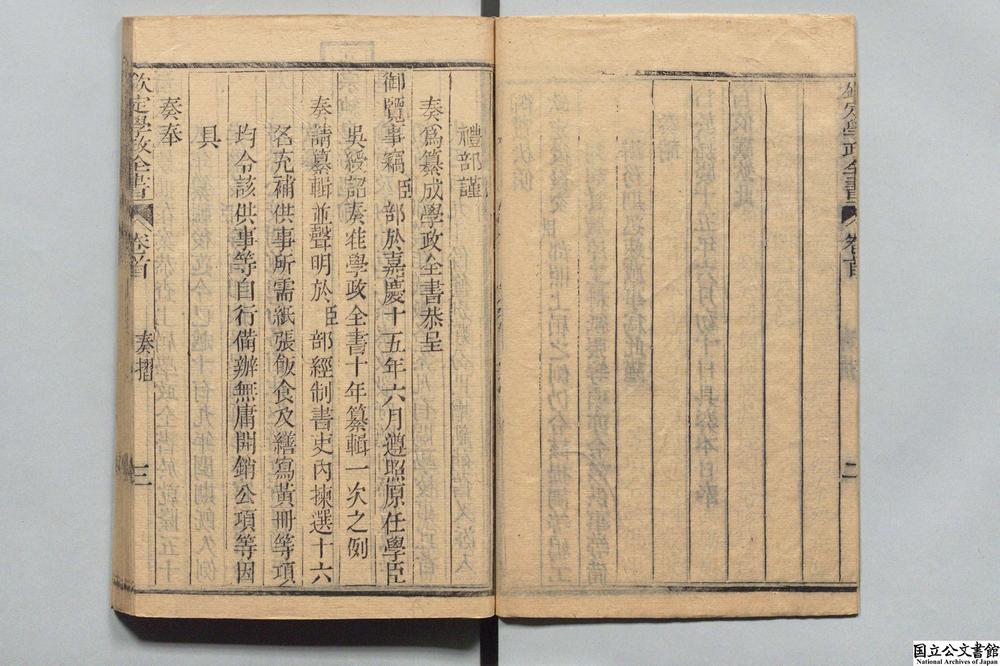 欽定學政全書
卷首
二
禮部謹
奏爲纂成學政全書恭呈
御覽事竊臣部於嘉慶十五年六月遵照原任學臣
吳綬詔奏准學政全書十年纂輯一次之例
奏請纂輯並聲明於臣部經制書吏內揀選十六
名充補供事所需紙張飯食及繕寫黃冊等項
均令該供事等自行備辦無庸開銷公項等因
具
奏奉
欽定學政全書
卷首
奏摺
三
国立公文書館
National Archives of Japan